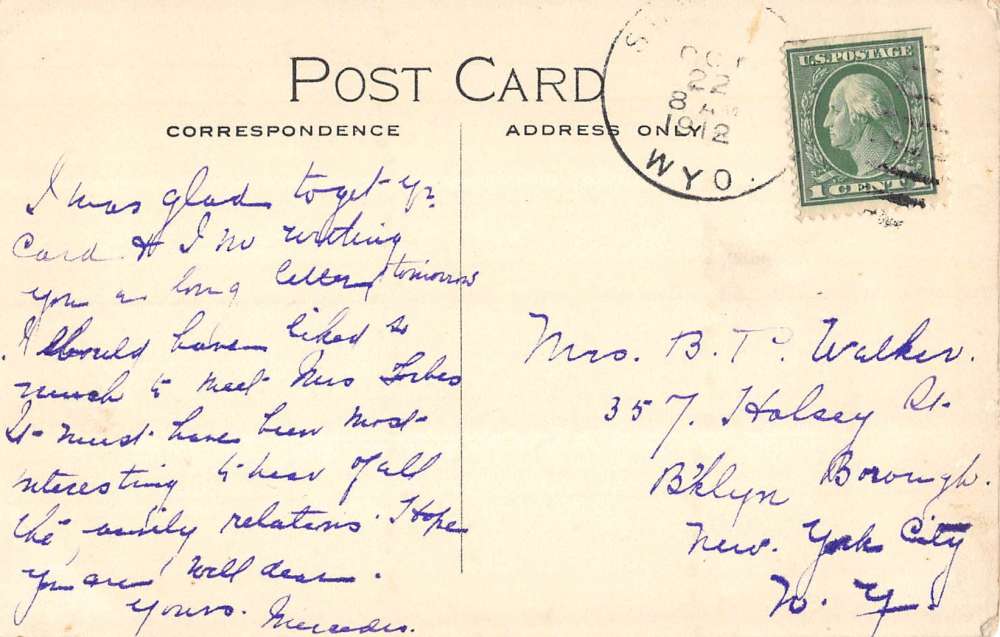 POST CARD
CORRESPONDENCE
ADDRESS ONLY
OCT
22
8 AM
1912
WYO.
U.S. POSTAGE
1 CENT 1
I was glad to get yr
Card & I writing
you a long letter tomorrow
I should have liked so
much to meet Mrs Forbes
It must have been most
interesting to hear of all
the family relations. Hope
you are well dear.
Yours. Mercedes.
Mrs. B. T. Walker.
357. Halsey St
B'klyn Borough.
New. York City
N. Y.